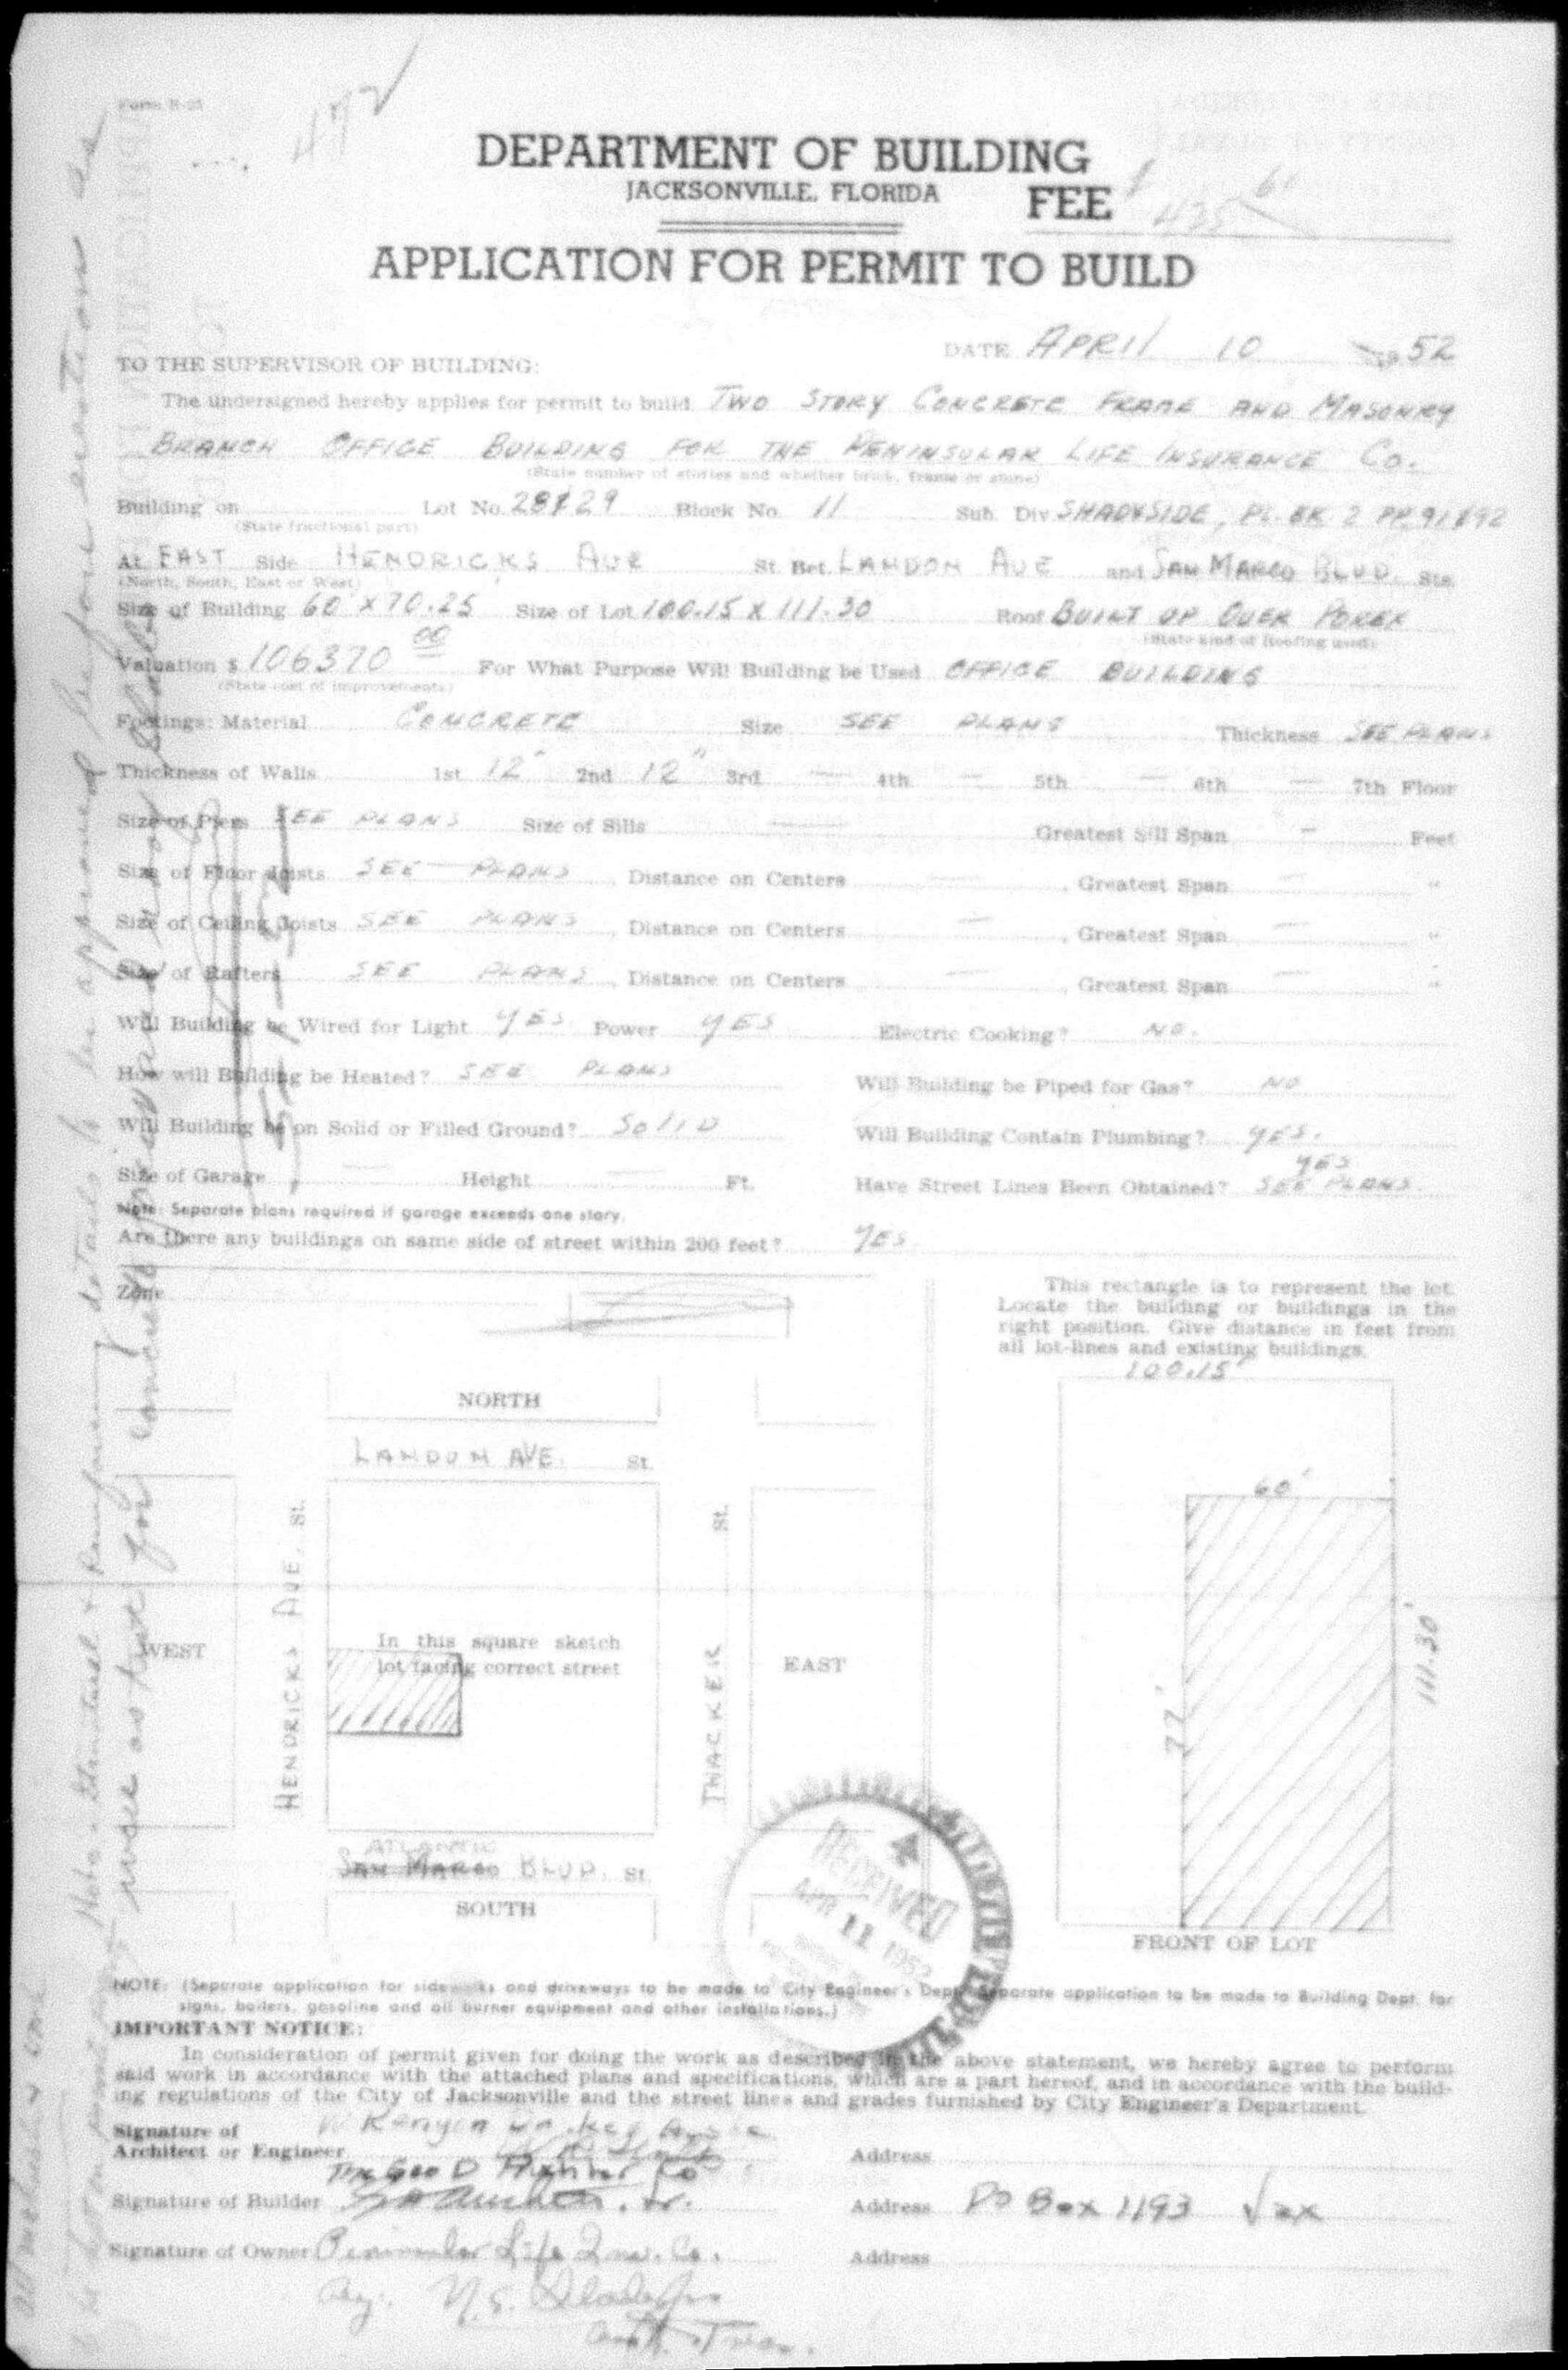 Form B-21
472
DEPARTMENT OF BUILDING
JACKSONVILLE, FLORIDA
FEE
APPLICATION FOR PERMIT TO BUILD
DATE APRIl 10 1952
TO THE SUPERVISOR OF BUILDING:
The undersigned hereby applies for permit to build TWO STORY CONCRETE FRAME AND MASONRY
BRANCH OFFICE BUILDING FOR THE PENINSULAR LIFE INSURANCE CO.
(State number of stories and whether brick, frame or stone)
Building on Lot No. 28 & 29 Block No. 11 Sub. Div. SHADYSIDE, PL. BK 2 PP. 91 & 92
(State fractional part)
At EAST Side HENDRICKS AVE St. Bet. LANDON AVE and SAN MARCO BLVD. Sts.
(North, South, East or West)
Size of Building 60 X 70.25 Size of Lot 100.15 X 111.30 Roof BUILT UP OVER POREX
(State kind of Roofing used)
Valuation $ 106370 00 For What Purpose Will Building be Used OFFICE BUILDING
(State cost of improvements)
Footings: Material CONCRETE Size SEE PLANS Thickness SEE PLANS
Thickness of Walls 1st 12" 2nd 12" 3rd — 4th — 5th — 6th — 7th Floor
Size of Piers SEE PLANS Size of Sills — Greatest Sill Span — Feet
Size of Floor Joists SEE PLANS, Distance on Centers —, Greatest Span — "
Size of Ceiling Joists SEE PLANS, Distance on Centers —, Greatest Span — "
Size of Rafters SEE PLANS, Distance on Centers —, Greatest Span — "
Will Building be Wired for Light YES Power YES Electric Cooking? NO.
How will Building be Heated? SEE PLANS Will Building be Piped for Gas? NO
Will Building be on Solid or Filled Ground? SOLID Will Building Contain Plumbing? YES.
YES
Size of Garage — Height — Ft. Have Street Lines Been Obtained? SEE PLANS.
Note: Separate plans required if garage exceeds one story.
Are there any buildings on same side of street within 200 feet? YES
Zone
This rectangle is to represent the lot.
Locate the building or buildings in the
right position. Give distance in feet from
all lot-lines and existing buildings.
100.15'
NORTH
LANDON AVE. St.
60'
HENDRICKS AVE. St.
THACKER St.
111.30'
77'
WEST
In this square sketch
lot facing correct street
EAST
ATLANTIC
SAN MARCO BLVD. St.
SOUTH
RECEIVED
APR 11 1952
FRONT OF LOT
NOTE: (Separate application for sidewalks and driveways to be made to City Engineer's Dept. Separate application to be made to Building Dept. for
signs, boilers, gasoline and oil burner equipment and other installations.)
IMPORTANT NOTICE:
In consideration of permit given for doing the work as described in the above statement, we hereby agree to perform
said work in accordance with the attached plans and specifications, which are a part hereof, and in accordance with the build-
ing regulations of the City of Jacksonville and the street lines and grades furnished by City Engineer's Department.
Signature of
Architect or Engineer Address
The Geo D Co
Signature of Builder Address PO Box 1193 Jax
Signature of Owner Peninsular Life Ins. Co. Address